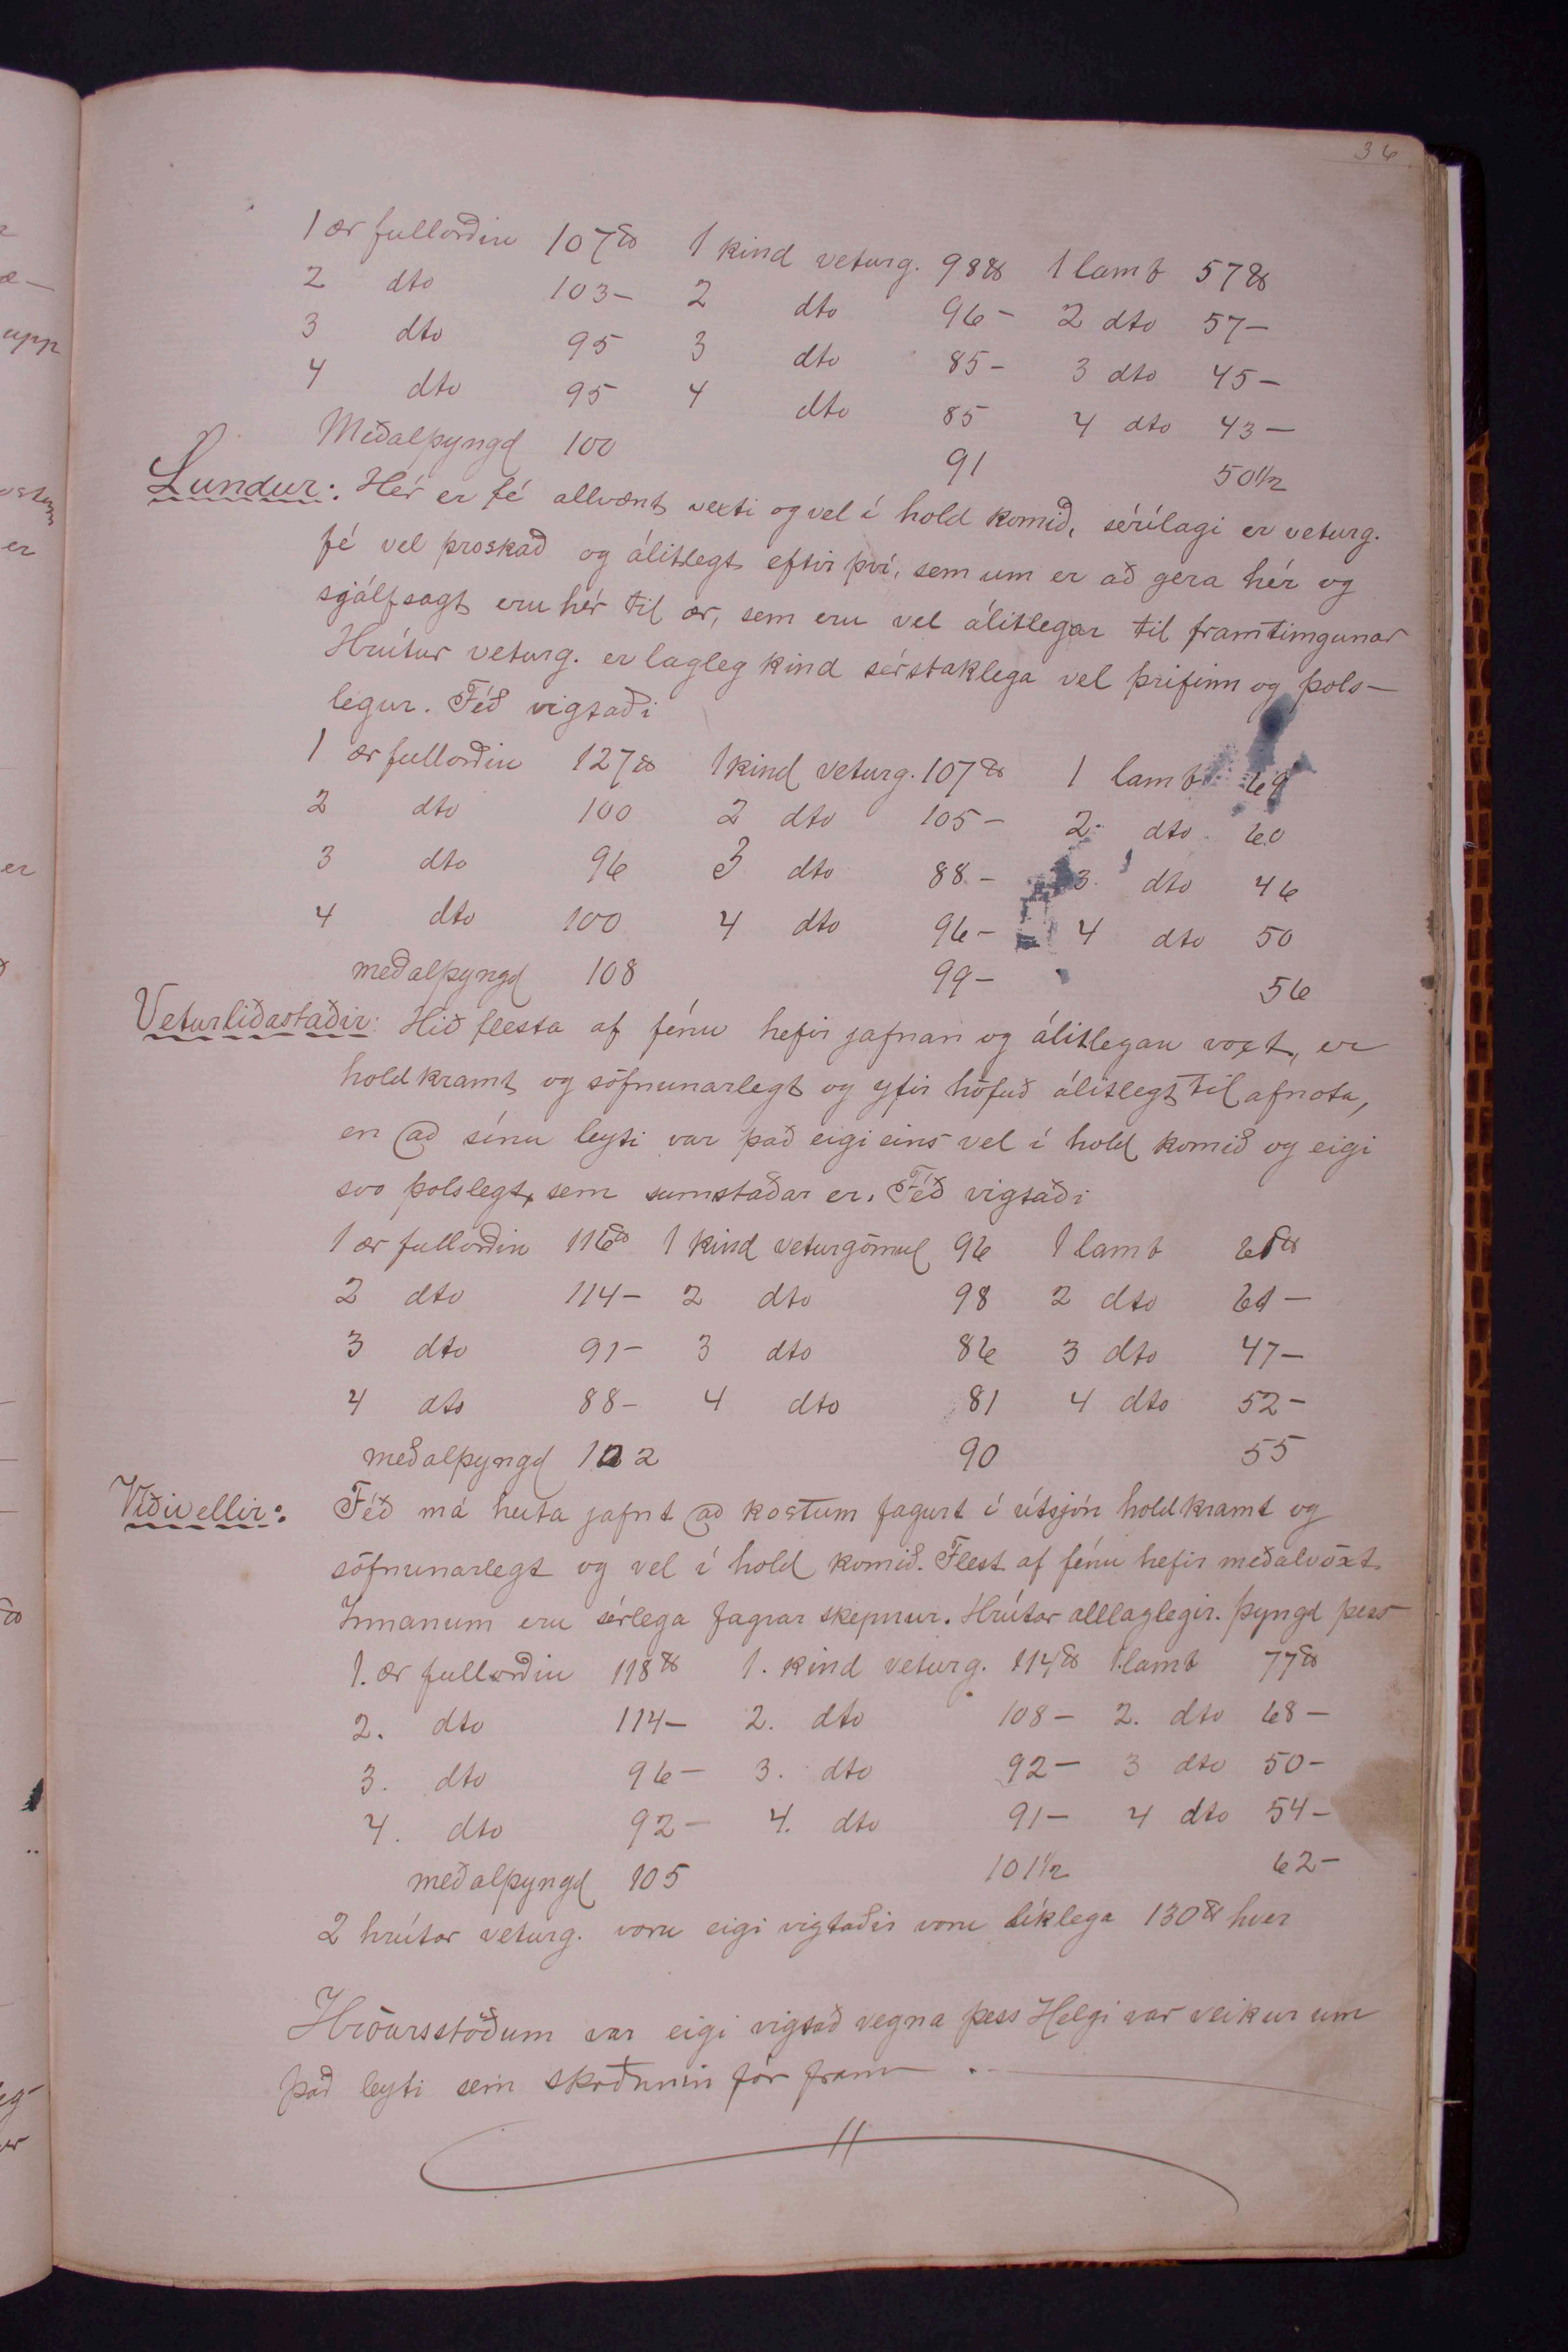 36
1 ær fullorðin 107 ℔ 1 kind veturg. 98 ℔ 1 lamb 57 ℔
2 dto 103 - 2 dto 96 - 2 dto 57 -
3 dto 95 3 dto 85 - 3 dto 45 -
4 dto 95 4 dto 85 4 dto 43 -
Meðalþyngd 100 91 50 1/2
Lundur: Hér er fé allvænt vexti og vel í hold komið, sérílagi er veturg.
fé vel þroskað og álitlegt eftir því, sem um er að gera hér og
sjálfsagt eru hér til ær, sem eru vel álitlegar til framtimgunar
Hrútur veturg. er lagleg kind sérstaklega vel þrifinn og þols-
legur. Féð vigtaði
1 ær fullorðin 127 ℔ 1 kind veturg. 107 ℔ 1 lamb 69
2 dto 100 2 dto 105 - 2 dto 60
3 dto 96 3 dto 88 - 3. dto 46
4 dto 100 4 dto 96 - 4 dto 50
meðalþyngd 108 99 - 56
Veturliðastaðir: Hið flesta af fénu hefir jafnan og álitlegan voxt, er
holdkramt og söfnunarlegt og yfir höfuð álitlegt til afnota,
en að sínu leyti var það eigi eins vel í hold komið og eigi
svo þolslegt, sem sumstaðar er. Féð vigtaði
1 ær fullorðin 116 ℔ 1 kind veturgömul 96 1 lamb 61 ℔
2 dto 114 - 2 dto 98 2 dto 61 -
3 dto 91 - 3 dto 86 3 dto 47 -
4 dto 88 - 4 dto 81 4 dto 52 -
meðalþyngd 102 90 55
Víðivellir: Féð má heita jafnt að kostum fagurt í útsjón holdkramt og
söfnunarlegt og vel í hold komið. Flest af fénu hefir meðalvöxt
Innanum eru sérlega fagrar skepnur. Hrútar alllaglegir. Þyngd þess
1. ær fullorðin 118 ℔ 1. kind veturg. 114 ℔ 1. lamb 77 ℔
2. dto 114 - 2. dto 108 - 2. dto 68 -
3. dto 96 - 3. dto 92 - 3 dto 50 -
4. dto 92 - 4. dto 91 - 4 dto 54 -
meðalþyngd 105 101 1/2 62 -
2 hrútar veturg. voru eigi vigtaðir voru líklega 130 ℔ hver
Hróarsstöðum var eigi vigtað vegna þess Helgi var veikur um
það leyti sem skoðunin fór fram.